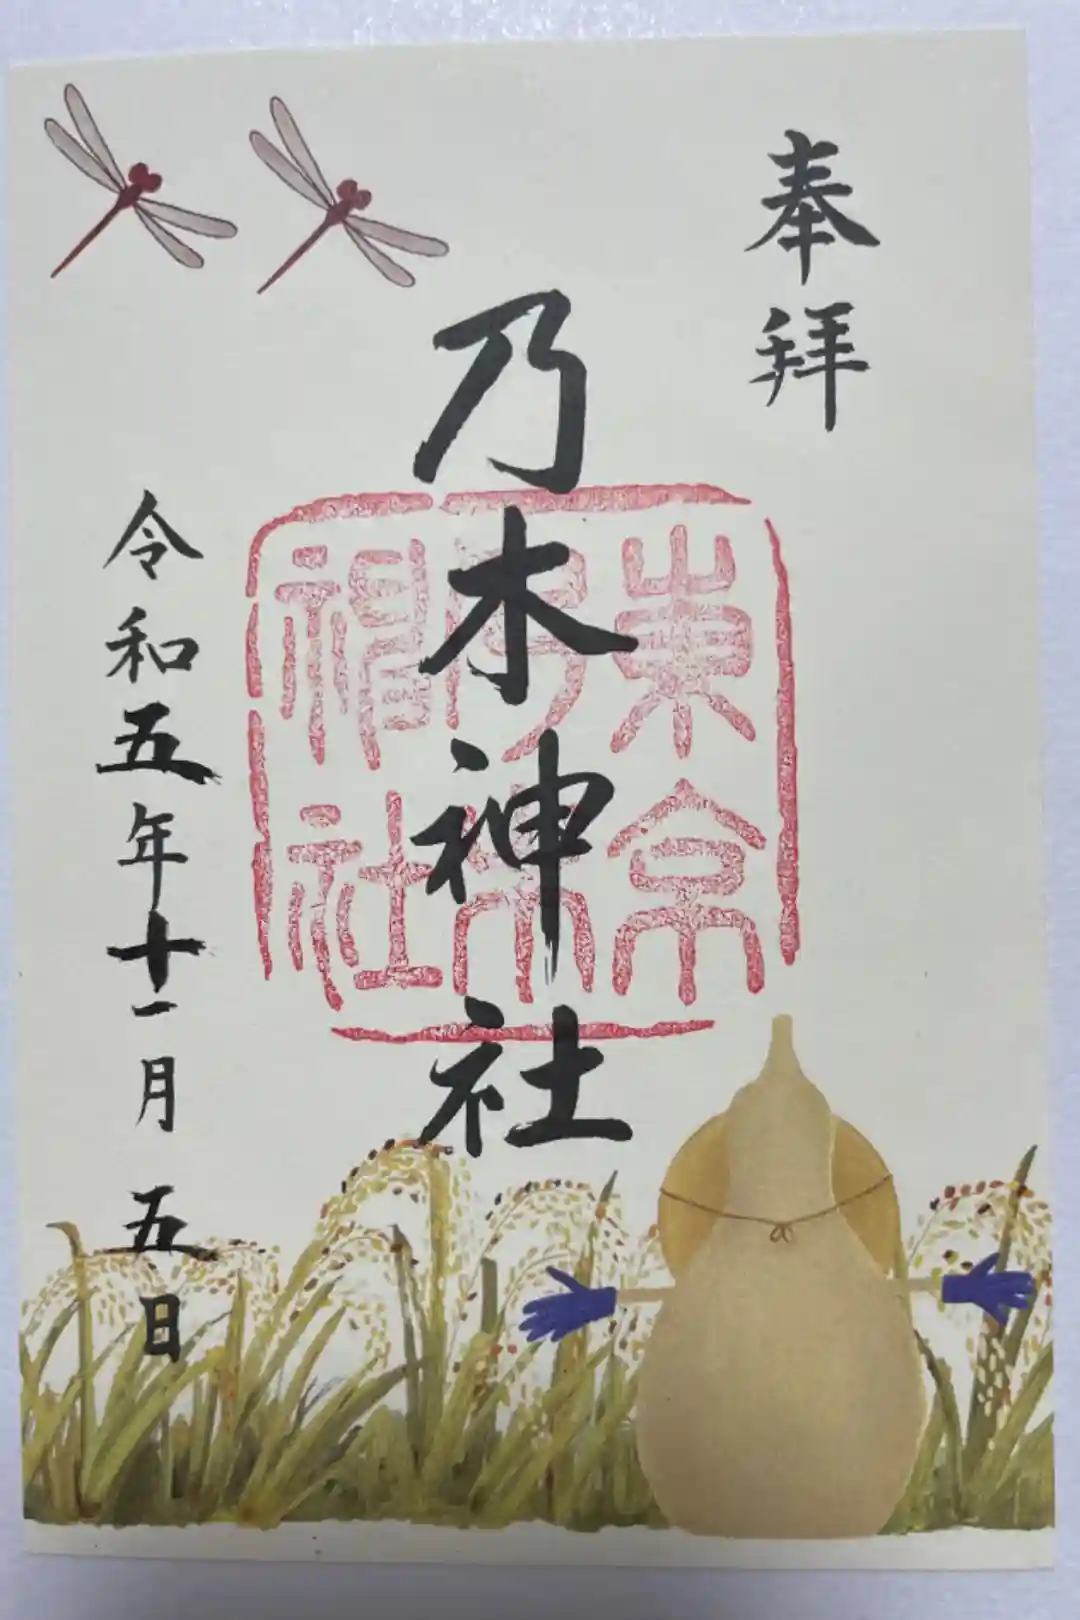 奉拝
乃木神社
東京乃木神社
令和五年十一月五日